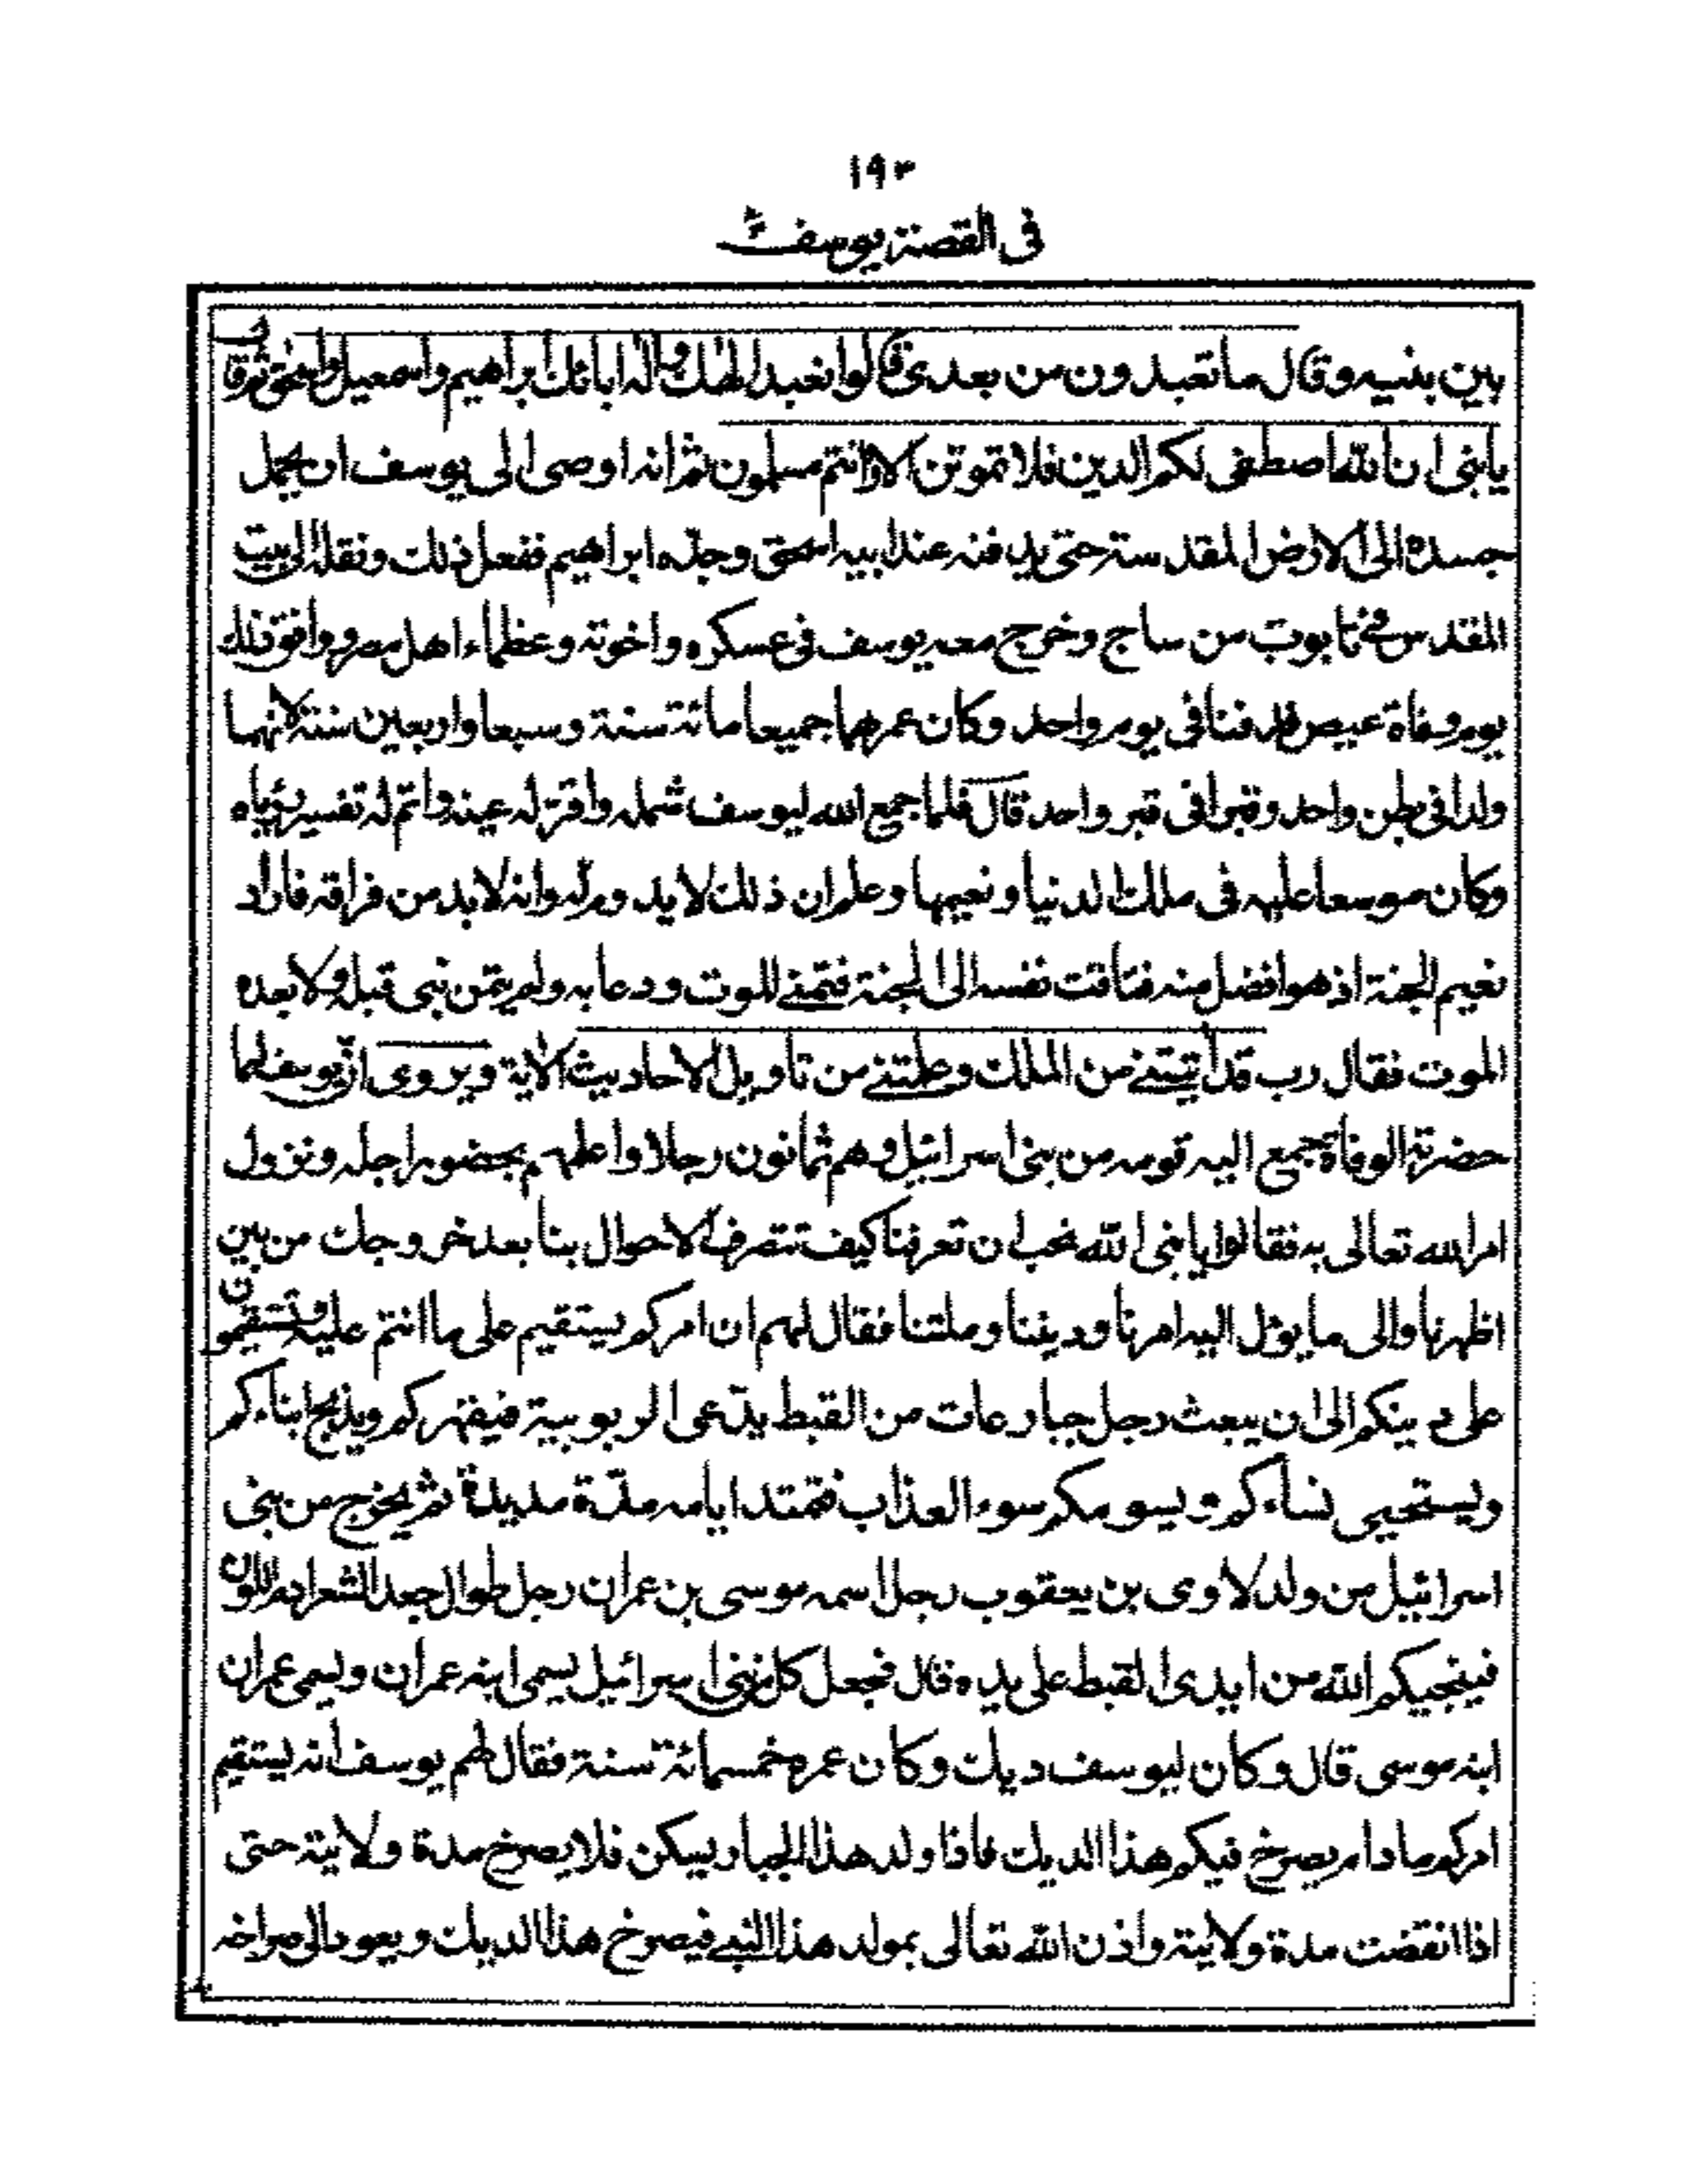 ١٩٣
فى القصة يوسف ع
بين بنيه وقال ما تعبدون من بعدى قالوا نعبد الهك واله ابائك ابراهيم واسمعيل واسحق ثم قال
يا بنى ان الله اصطفى لكم الدين فلا تموتن الا وانتم مسلمون ثم انه اوصى الى يوسف ان يحمل
جسده الى الارض المقدسة حتى يدفنه عند ابيه اسحق وجدّه ابراهيم ففعل ذلك ونقله الى بيت
المقدس فى تابوت من ساج وخرج معه يوسف فى عسكره واخوته وعظماء اهل مصر ووافق ذلك
يوم وفاة عيص فدفنا فى يوم واحد وكان عمرهما جميعا مائة سنة وسبعا واربعين سنة لانهما
ولدا فى بطن واحد وقبرا فى قبر واحد قال فلما جمع الله ليوسف شمله واقر له عينه واتم له تفسير رؤياه
وكان موسعا عليه فى ملك الدنيا ونعيمها وعلم ان ذلك لا يدوم له وانه لا بد من فراقه فاراد
نعيم الجنة اذ هو افضل منه فتاقت نفسه الى الجنة فتمنى الموت ودعا به ولم يتمن نبى قبله ولا بعده
الموت فقال رب قد أتيتنى من الملك وعلمتنى من تاويل الاحاديث الاية ويروى ان يوسف لما
حضرته الوفاة جمع اليه قومه من بنى اسرائيل وهم ثمانون رجلا واعلمهم بحضور اجله ونزول
امر الله تعالى به فقالوا يا نبى الله نحب ان تعرفنا كيف تتصرف الاحوال بنا بعد خروجك من بين
اظهرنا والى ما يؤل اليه امرنا وديننا وملتنا فقال لهم ان امركم يستقيم على ما انتم عليه وتستقيمون
على دينكم الى ان يبعث رجل جبار عات من القبط يدّعى الربوبية فيقهركم ويذبح ابناءكم
ويستحيى نساءكم ويسومكم سوء العذاب فتمتد ايامه مدّة مديدة ثم يخرج من بنى
اسرائيل من ولد لاوى بن يعقوب رجل اسمه موسى بن عمران رجل طوال جعد الشعر ادم اللون
فينجيكم الله من ايدى القبط على يده قال فجعل كل من بنى اسرائيل يسمى ابنه عمران ويسمى عمران
ابنه موسى قال وكان ليوسف ديك وكان عمره خمسمائة سنة فقال لهم يوسف انه يستقيم
امركم ما دام يصرخ فيكم هذا الديك فاذا ولد هذا الجبار يسكن فلا يصرخ مدة ولايته حتى
اذا انقضت مدة ولايته واذن الله تعالى بمولد هذا النبى فيصرخ هذا الديك ويعود الى صراخه